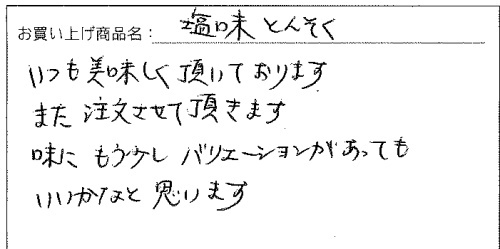 お買い上げ商品名: 塩味 とんそく
いつも美味しく頂いております
また注文させて頂きます
味に もう少し バリエーションがあっても
いいかなと思います